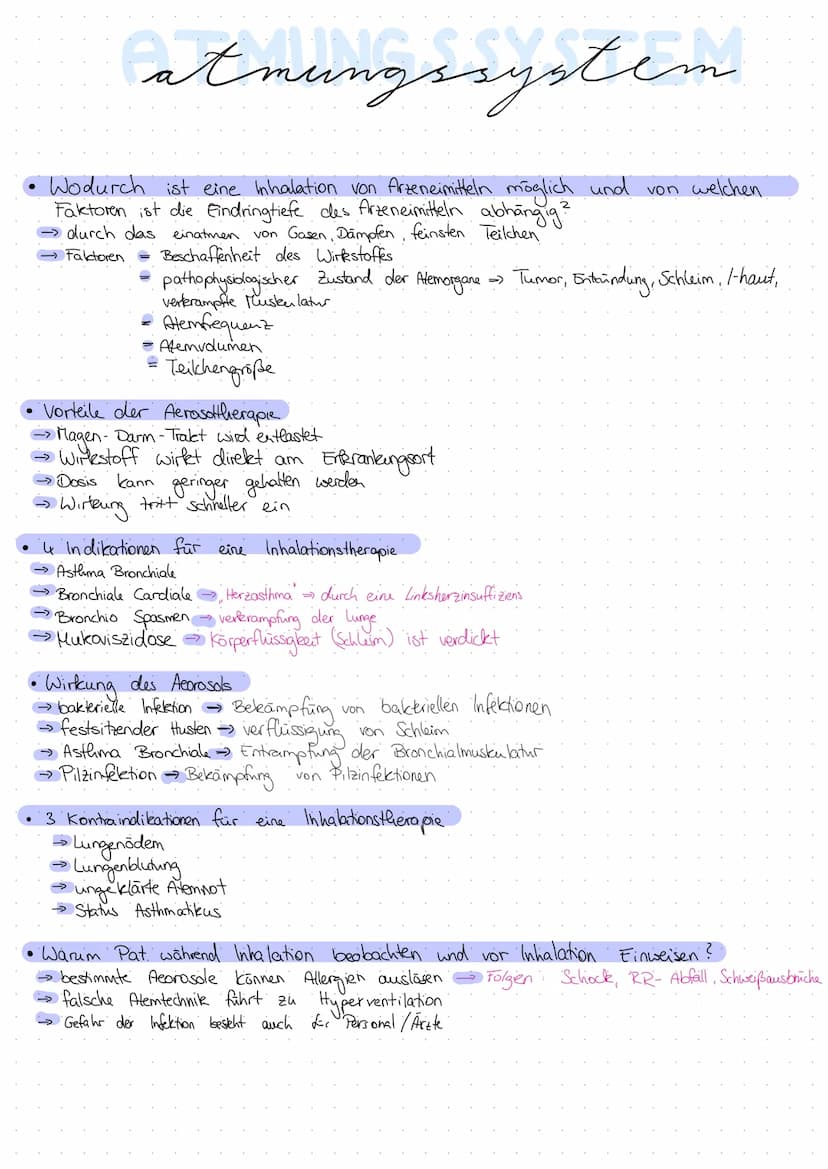 ATMUNGSSYSTEM
atmungssystem
• Wodurch ist eine Inhalation von Arzeneimitteln möglich und von welchen
Faktoren ist die Eindringtiefe des Arzeneimitteln abhängig?
→ durch das einatmen von Gasen, Dämpfen, feinsten Teilchen
→ Faktoren = Beschaffenheit des Wirkstoffes
= pathophysiologischer Zustand der Atemorgane ⇒ Tumor, Entzündung, Schleim, /-haut,
verkrampfte Muskulatur
= Atemfrequenz
= Atemvolumen
= Teilchengröße
• Vorteile der Aerosoltherapie
→ Magen-Darm-Trakt wird entlastet
→ Wirkstoff wirkt direkt am Erkrankungsort
→ Dosis kann geringer gehalten werden
→ Wirkung tritt schneller ein
• 4 Indikationen für eine Inhalationstherapie
→ Asthma Bronchiale
→ Bronchiale Cardiale → „Herzasthma" ⇒ durch eine Linksherzinsuffizens
→ Bronchio Spasmen → verkrampfung der Lunge
→ Mukoviszidose → Körperflüssigkeit (Schleim) ist verdickt
• Wirkung des Aeorosols
→ bakterielle Infektion → Bekämpfung von bakteriellen Infektionen
→ festsitzender Husten → verflüssigung von Schleim
→ Asthma Bronchiale → Entkrampfung der Bronchialmuskulatur
→ Pilzinfektion → Bekämpfung von Pilzinfektionen
• 3 Kontraindikationen für eine Inhalationstherapie
→ Lungenödem
→ Lungenblutung
→ ungeklärte Atemnot
→ Status Asthmatikus
• Warum Pat. während Inhalation beobachten und vor Inhalation Einweisen?
→ bestimmte Aeorosole können Allergien auslösen → Folgen: Schock, RR-Abfall, Schweißausbrüche
→ falsche Atemtechnik führt zu Hyperventilation
→ Gefahr der Infektion besteht auch für Personal/Ärzte